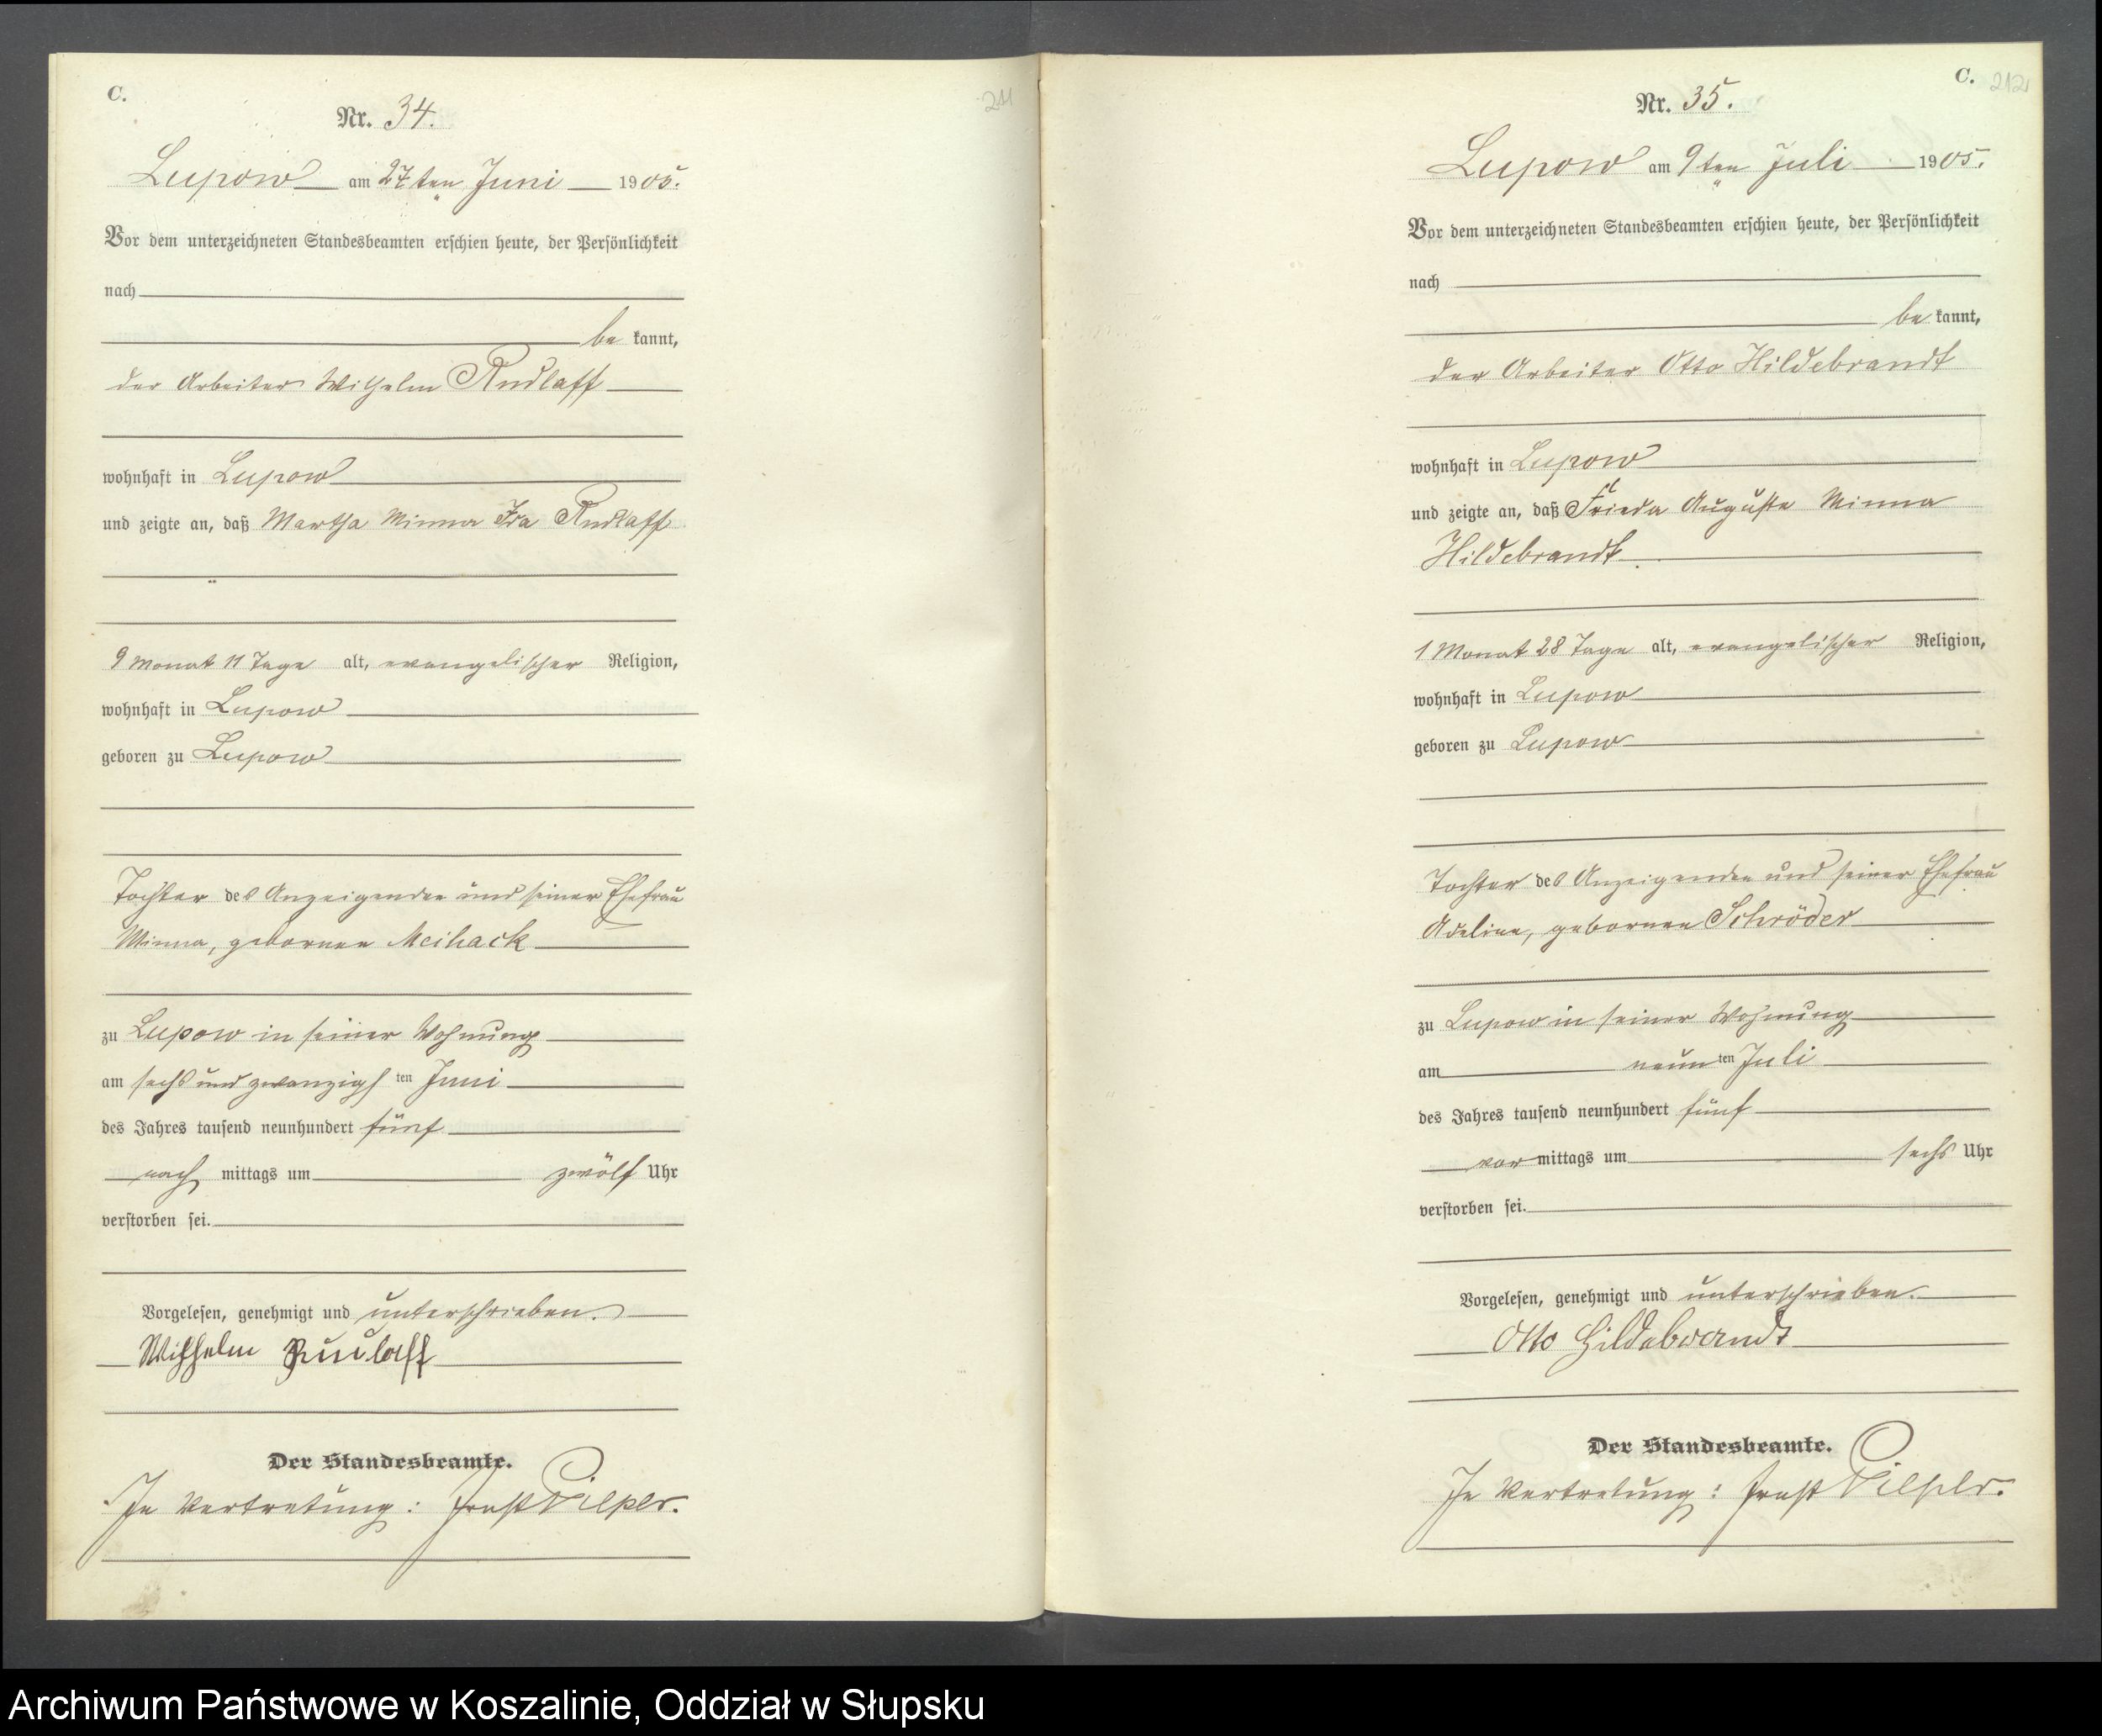 C.
211
Nr. 34.
Lupow am 27ten Juni 1905.
Vor dem unterzeichneten Standesbeamten erschien heute, der Persönlichkeit
nach
be kannt,
der Arbeiter Wilhelm Rudlaff
wohnhaft in Lupow
und zeigte an, daß Martha Minna Ida Rudlaff
9 Monat 11 Tage alt, evangelischer Religion,
wohnhaft in Lupow
geboren zu Lupow
Tochter des Anzeigenden und seiner Ehefrau
Minna, geborenen Meihack
zu Lupow in seiner Wohnung
am sechs und zwanzigsten Juni
des Jahres tausend neunhundert fünf
nach mittags um zwölf Uhr
verstorben sei.
Vorgelesen, genehmigt und unterschrieben.
Wilhelm Rudlaff
Der Standesbeamte.
In Vertretung: Ernst Pieper.
C.
212
Nr. 35.
Lupow am 9ten Juli 1905.
Vor dem unterzeichneten Standesbeamten erschien heute, der Persönlichkeit
nach
be kannt,
der Arbeiter Otto Hildebrandt
wohnhaft in Lupow
und zeigte an, daß Frieda Auguste Minna
Hildebrandt
1 Monat 28 Tage alt, evangelischer Religion,
wohnhaft in Lupow
geboren zu Lupow
Tochter des Anzeigenden und seiner Ehefrau
Adeline, geborenen Schröder
zu Lupow in seiner Wohnung
am neunten Juli
des Jahres tausend neunhundert fünf
vor mittags um sechs Uhr
verstorben sei.
Vorgelesen, genehmigt und unterschrieben.
Otto Hildebrandt
Der Standesbeamte.
In Vertretung: Ernst Pieper.
Archiwum Państwowe w Koszalinie, Oddział w Słupsku